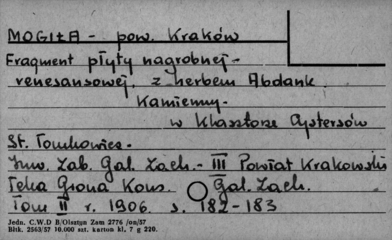 MOGIŁA - pow. Kraków
Fragment płyty nagrobnej -
renesansowej, z herbem Abdank
Kamienny -
w klasztorze Cystersów
St. Tomkowicz -
Inw. Zab. Gal. Zach. - III Powiat Krakowski
Teka Grona Kons. Gal. Zach.
Tom II r. 1906. s. 182-183
Jedn. C.W.D B/Olsztyn Zam 2776 /on/57
Błtk. 2563/57 10.000 szt. karton kl. 7 g 220.